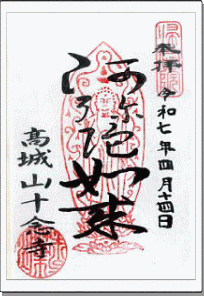 奉拝 令和七年四月十四日
阿弥陀如来
高城山十念寺